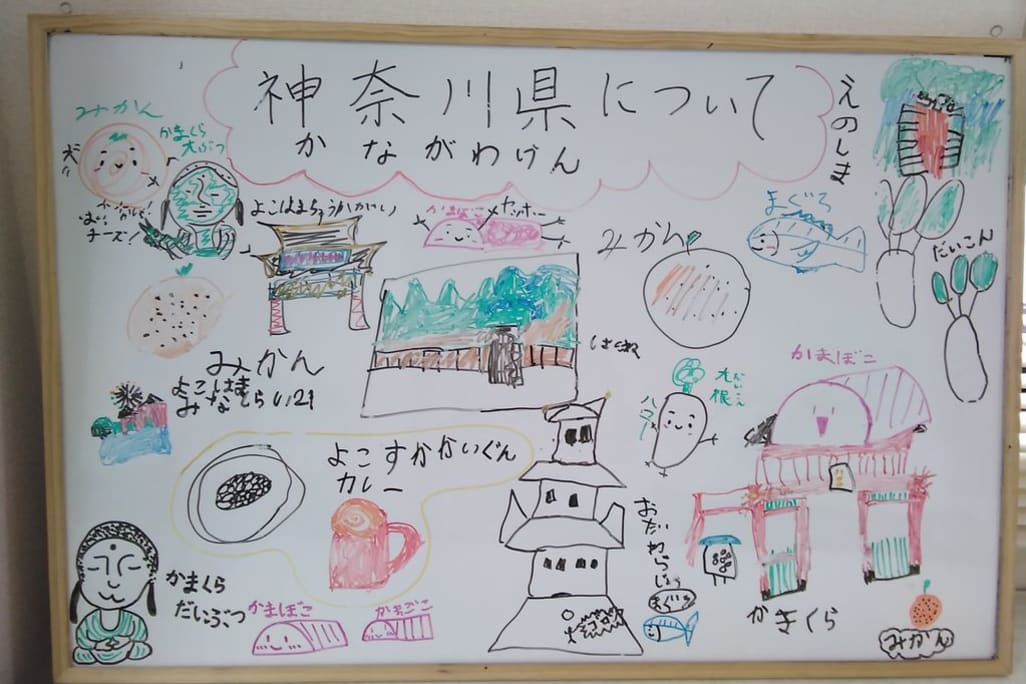 神奈川県について
かながわけん
えのしま
みかん
かまくら
大ぶつ
チーズ!
よこはまちゅうかがい
かまぼこ
ヤッホー
みかん
まぐろ
だいこん
みかん
よこはま
みなとらい21
はこね
大根
ハロー
かまぼこ
よこすかかいぐん
カレー
おだわらじょう
まぐろ
かまくら
だいぶつ
かまぼこ
かまぼこ
かまくら
みかん